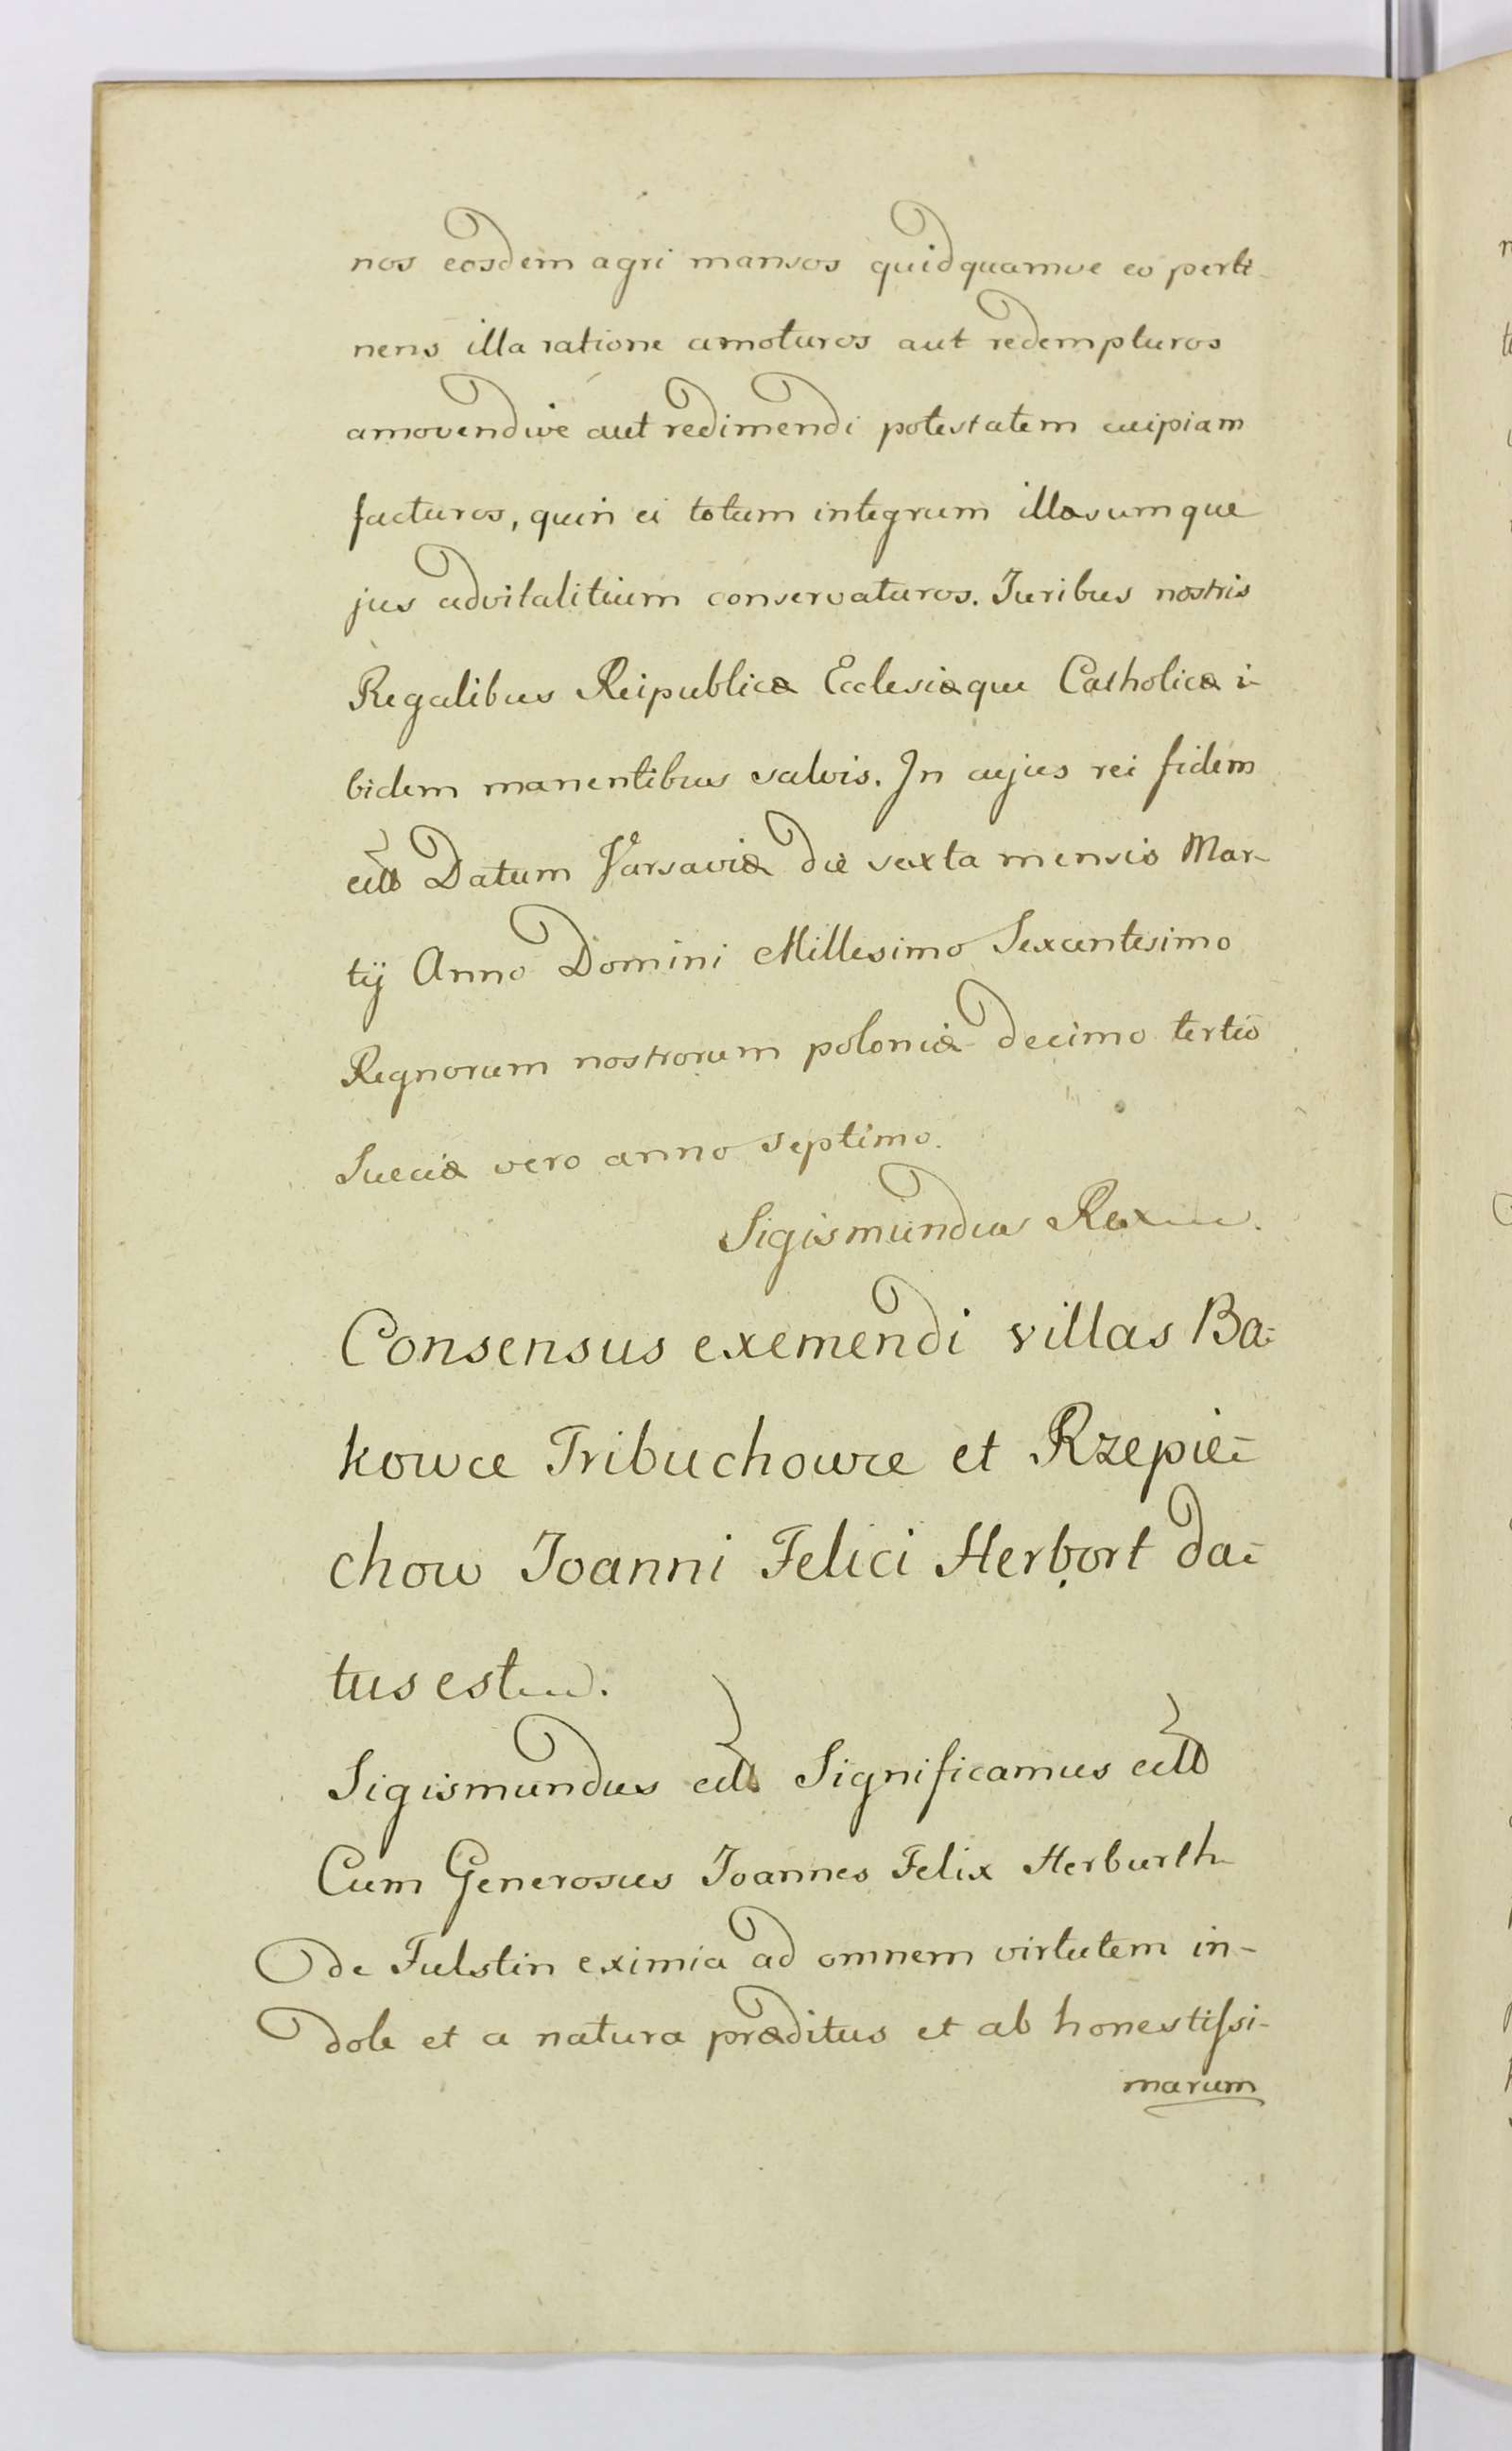 nos eosdem agri mansos quidquamve eo perti-
nens illa ratione amoturos aut redempturos
amovendive aut redimendi potestatem cuipiam
facturos, quin ei totum integrum illæsumque
jus advitalitium conservaturos. Juribus nostris
Regalibus Reipublicæ Ecclesiæque Catholicæ i-
bidem manentibus salvis. In cujus rei fidem
ett Datum Varsaviæ die sexta mensis Mar-
tij Anno Domini Millesimo Sexcentesimo
Regnorum nostrorum poloniæ decimo tertio
Sueciæ vero anno septimo.
Sigismundus Rex.
Consensus exemendi villas Ba-
kowce Tribuchowce et Rzepie-
chow Joanni Felici Herbort da-
tus est.
Sigismundus ett Significamus ett
Cum Generosus Joannes Felix Herburth
de Fulstin eximia ad omnem virtutem in-
dole et a natura præditus et ab honestissi-
marum